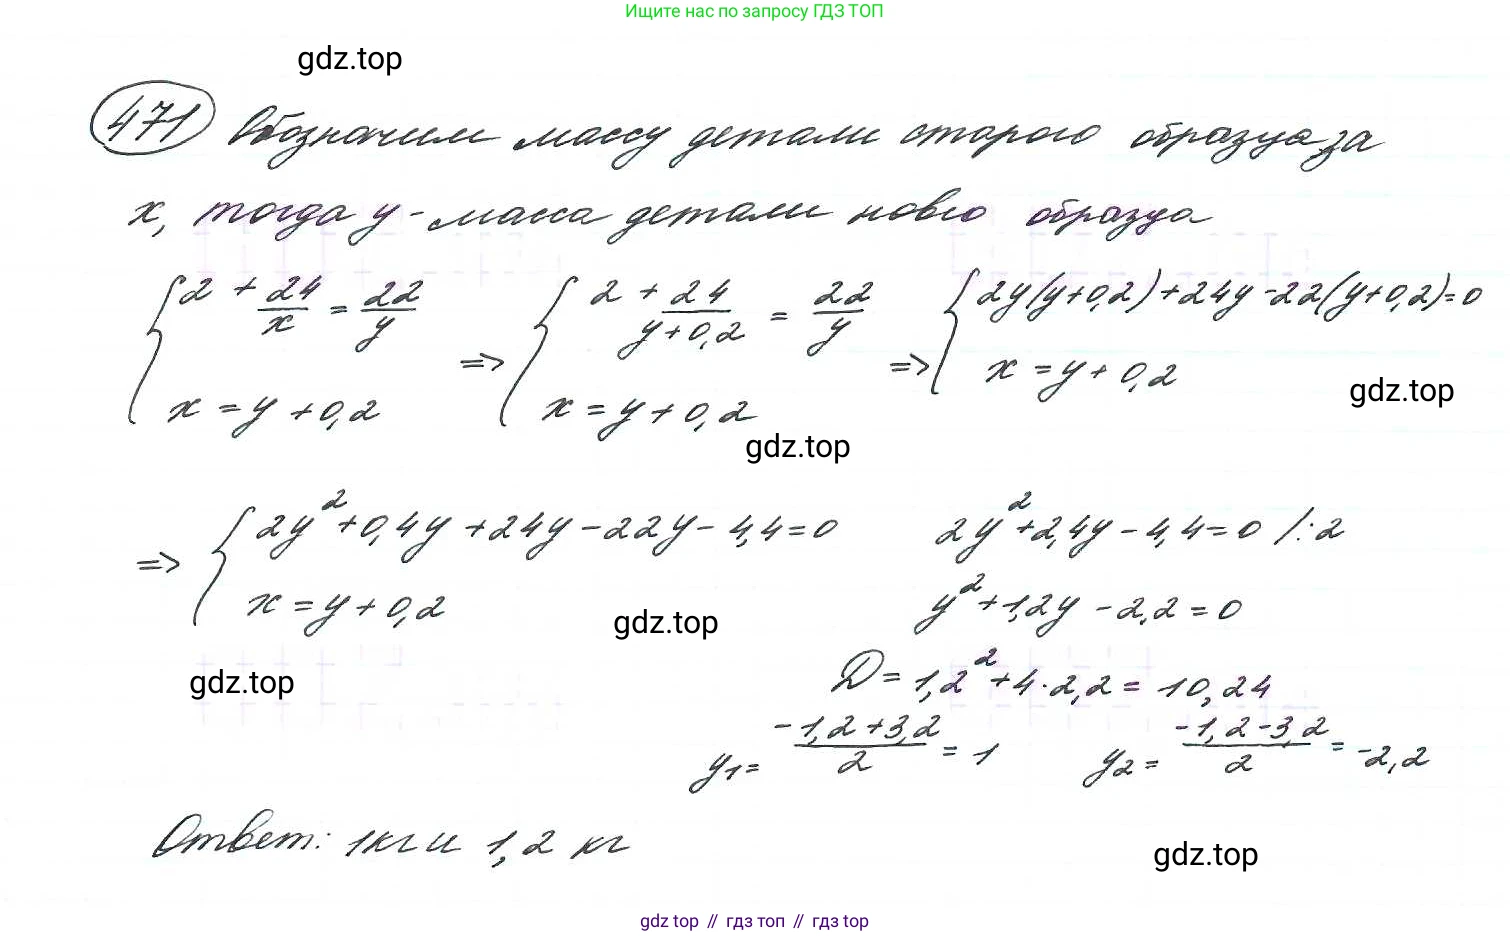 Ищите нас по запросу ГДЗ ТОП
gdz.top
471 Обозначим массу детали старого образца за
x, тогда y - масса детали нового образца
{ 2 + 24/x = 22/y => { 2 + 24/(y+0,2) = 22/y => { 2y(y+0,2)+24y-22(y+0,2)=0
x = y + 0,2 x = y + 0,2 x = y + 0,2
gdz.top
gdz.top
=> { 2y²+0,4y+24y-22y-4,4=0 2y²+2,4y-4,4=0 /:2
x = y + 0,2 y²+1,2y-2,2=0
gdz.top
gdz.top
D = 1,2²+4·2,2 = 10,24
y1 = (-1,2+3,2)/2 = 1 y2 = (-1,2-3,2)/2 = -2,2
Ответ: 1кг и 1,2 кг
gdz.top
gdz top // гдз топ // гдз top